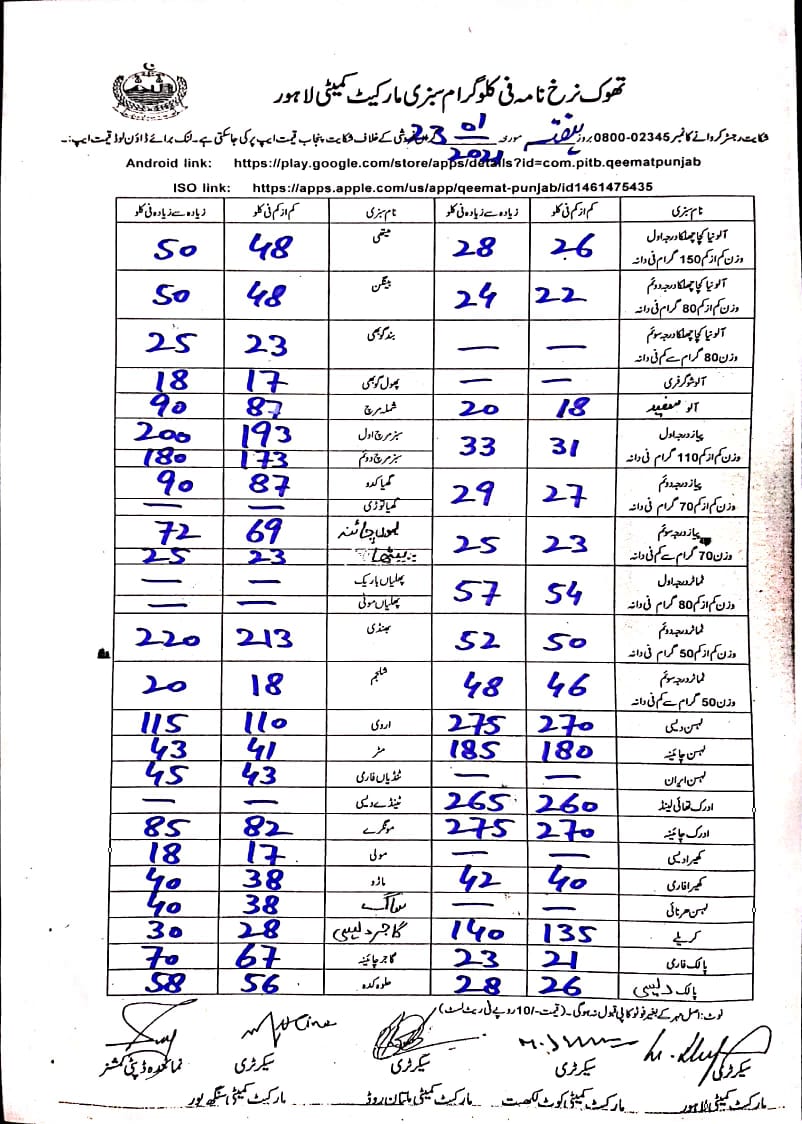 تھوک نرخ نامہ فی کلوگرام سبزی مارکیٹ کمیٹی لاہور
شکایت رجسٹر کروانے کا نمبر 02345-0800 بروز ہفتہ مورخہ 23 01 2021 گراں فروشی کے خلاف شکایت پنجاب قیمت ایپ پر کی جاسکتی ہے۔ لنک برائے ڈاؤن لوڈ قیمت ایپ:۔
Android link: https://play.google.com/store/apps/details?id=com.pitb.qeematpunjab
ISO link: https://apps.apple.com/us/app/qeemat-punjab/id1461475435
نام سبزی کم از کم فی کلو زیادہ سے زیادہ فی کلو نام سبزی کم از کم فی کلو زیادہ سے زیادہ فی کلو
آلو نیا کچا چھلکا درجہ اول وزن کم از کم 150 گرام فی دانہ 26 28 میتھی 48 50
آلو نیا کچا چھلکا درجہ دوئم وزن کم از کم 80 گرام فی دانہ 22 24 بینگن 48 50
آلو نیا کچا چھلکا درجہ سوئم وزن 80 گرام سے کم فی دانہ — — بند گوبھی 23 25
آلو شوگر فری — — پھول گوبھی 17 18
آلو سفید 18 20 شملہ مرچ 87 90
پیاز درجہ اول وزن کم از کم 110 گرام فی دانہ 31 33 سبز مرچ اول 193 200
سبز مرچ دوئم 173 180
پیاز درجہ دوئم وزن کم از کم 70 گرام فی دانہ 27 29 گھیا کدو 87 90
گھیا توری — —
پیاز درجہ سوئم وزن 70 گرام سے کم فی دانہ 23 25 لیموں چائنہ 69 72
پیٹھا 23 25
ٹماٹر درجہ اول وزن کم از کم 80 گرام فی دانہ 54 57 پھلیاں باریک — —
پھلیاں موٹی — —
ٹماٹر درجہ دوئم وزن کم از کم 50 گرام فی دانہ 50 52 بھنڈی 213 220
ٹماٹر درجہ سوئم وزن 50 گرام سے کم فی دانہ 46 48 شلجم 18 20
لہسن دیسی 270 275 اروی 110 115
لہسن چائینہ 180 185 مٹر 41 43
لہسن ایران — — ٹنڈیاں فارمی 43 45
ادرک تھائی لینڈ 260 265 ٹینڈے دیسی — —
ادرک چائینہ 270 275 مونگرے 82 85
کھیرا دیسی — — مولی 17 18
کھیرا فارمی 40 42 ماڑو 38 40
لہسن ہرنائی — — ساگ 38 40
کریلے 135 140 گاجر دیسی 28 30
پالک فارمی 21 23 گاجر چائینہ 67 70
پالک دیسی 26 28 حلوہ کدو 56 58
نوٹ: اصل مہر کے بغیر فوٹو کاپی قبول نہ ہوگی۔ (قیمت -/10 روپے فی ریٹ لسٹ)
سیکرٹری سیکرٹری سیکرٹری سیکرٹری نمائندہ ڈپٹی کمشنر
مارکیٹ کمیٹی لاہور مارکیٹ کمیٹی کوٹ لکھپت مارکیٹ کمیٹی ملتان روڈ مارکیٹ کمیٹی سنگھ پور